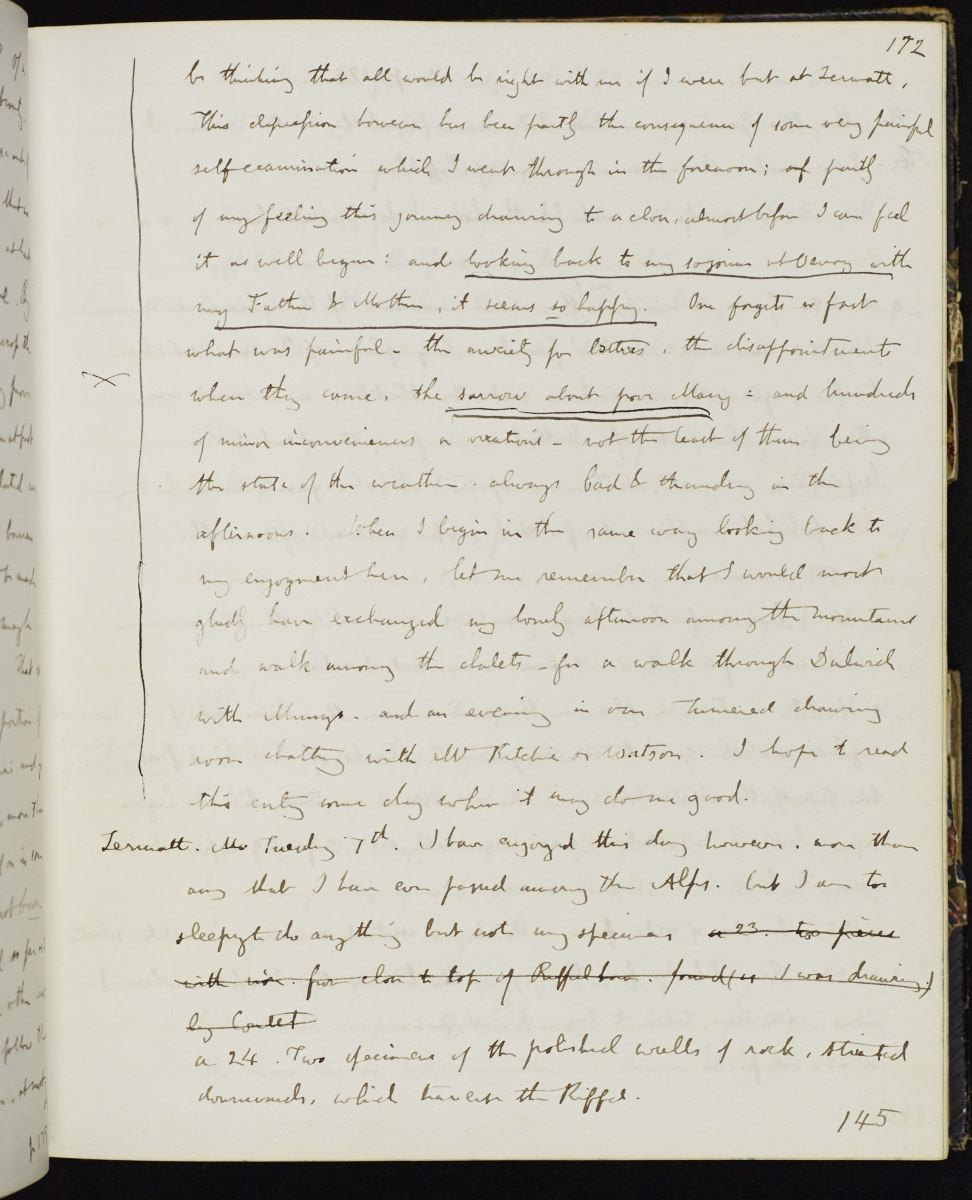 172
be thinking that all would be right with me if I were but at Zermatt.
This depression however has been partly the consequence of some very painful
self-examination which I went through in the forenoon; of partly
of my feeling this journey drawing to a close, almost before I can feel
it as well begun: and looking back to my sojourn at Vevay with
my Father & Mother, it seems so happy. One forgets so fast
what was painful - the anxiety for letters, the disappointments
when they came, the sorrow about poor Mary - and hundreds
of minor inconveniences or vexations - not the least of them being
the state of the weather. always bad & thundery in the
afternoons. When I begin in the same way looking back to
my enjoyment here, let me remember that I would most
gladly have exchanged my lonely afternoon among the mountains
and walk among the chalets - for a walk through Dulwich
with Mungo - and an evening in our Turnered drawing
room chatting with Mr Ritchie or Watson. I hope to read
this entry some day when it may do me good.
Zermatt. Tuesday 7th. I have enjoyed this day however. more than
any that I have ever passed among the Alps. but I am too
sleepy to do anything but note my specimens a 23. two pieces
with from close to top of Riffelhorn. found (as I was drawing)
by Coutet
a 24. Two specimens of the polished walls of rock, striated
downwards, which traverse the Riffel.
145